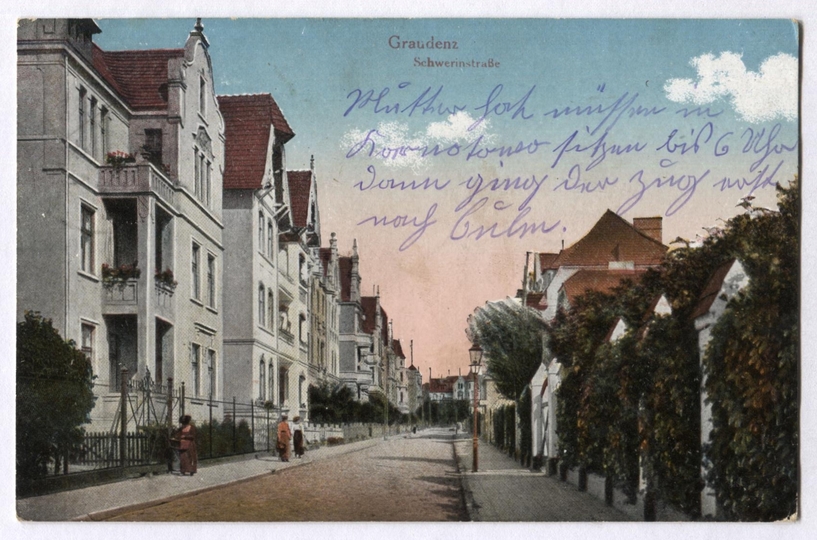 Graudenz
Schwerinstraße
Mutter hat müssen in
Kornatowo sitzen bis 6 Uhr
dann ging der zug erst
nach Culm.